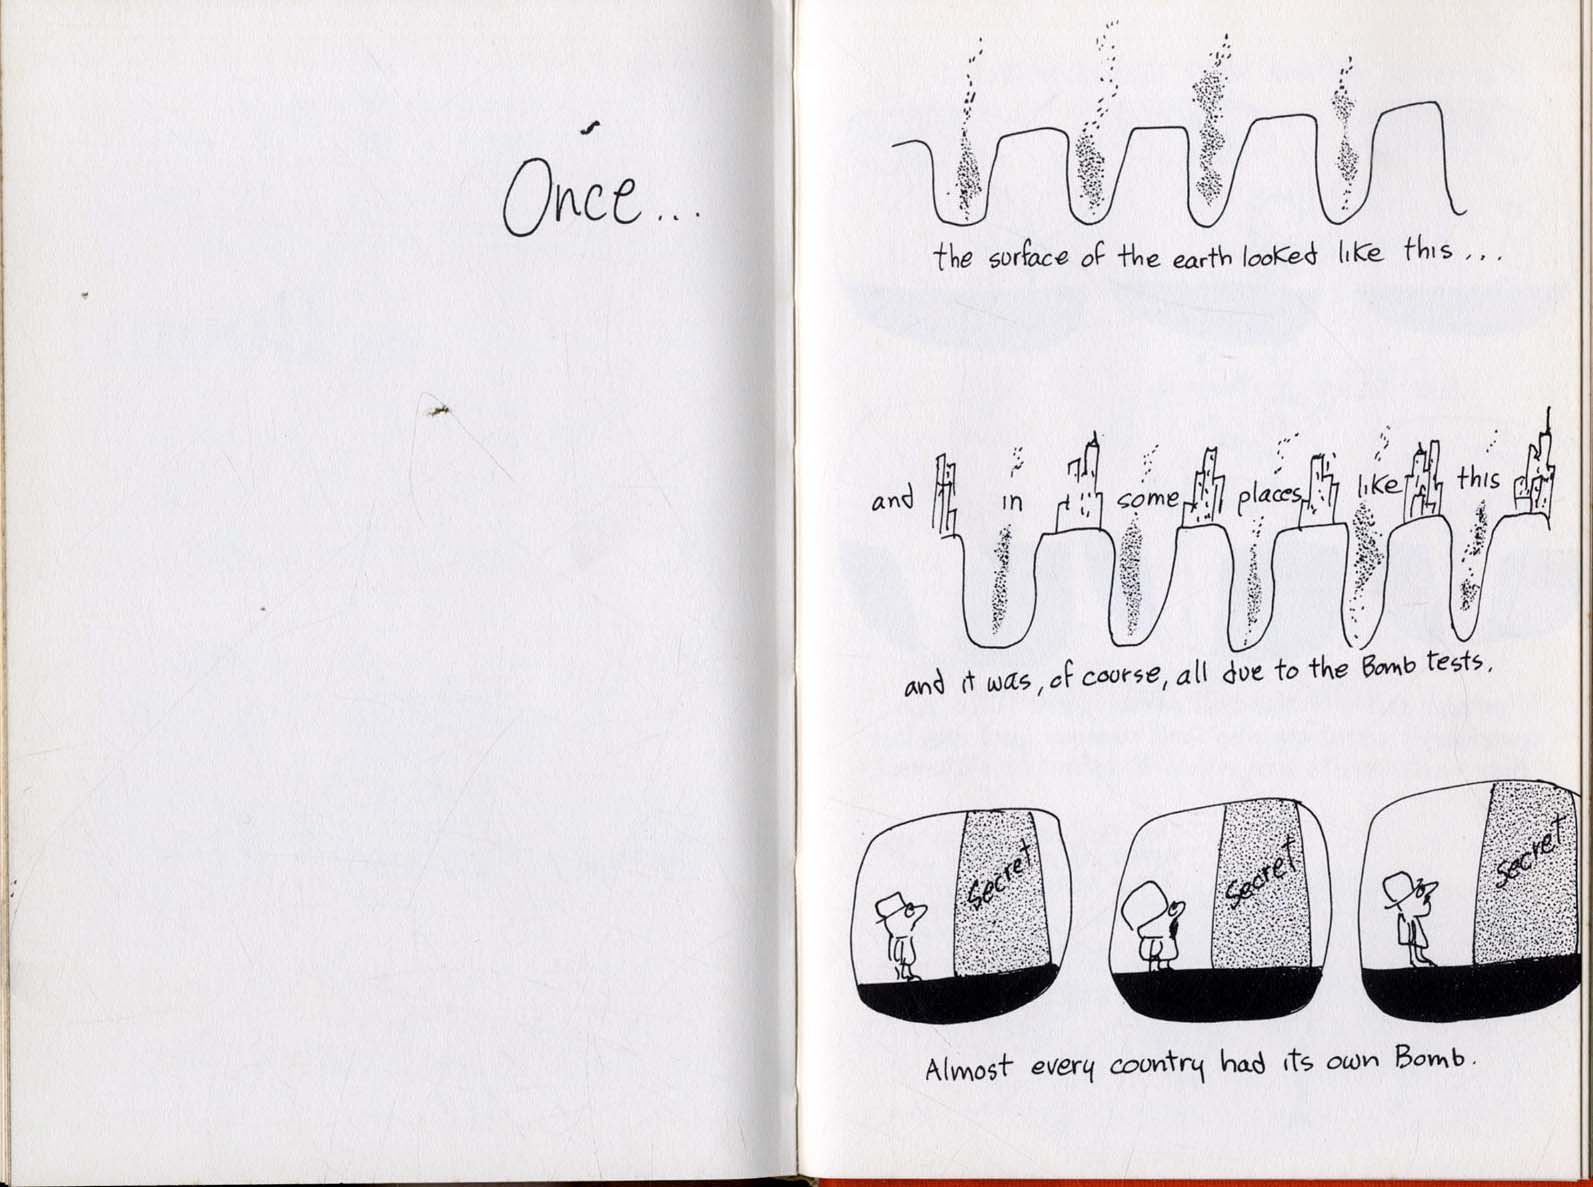 Once...
the surface of the earth looked like this...
and in some places like this
and it was, of course, all due to the Bomb tests.
Secret
Secret
Secret
Almost every country had its own Bomb.